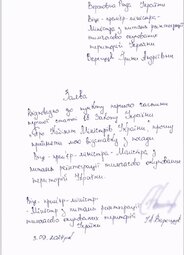 Верховна Рада України
Віце-прем'єр-міністра-
Міністра з питань реінтеграції
тимчасово окупованих
територій України
Верещук Ірини Андріївни
Заява
Відповідно до пункту першого частини
першої статті 18 Закону України
"Про Кабінет Міністрів України" прошу
прийняти мою відставку з посади
Віце-прем'єр-міністра-Міністра з
питань реінтеграції тимчасово окупованих
територій України.
Віце-прем'єр-міністр-
Міністр з питань реінтеграції
тимчасово окупованих територій
України
І. Верещук
3.09.2024